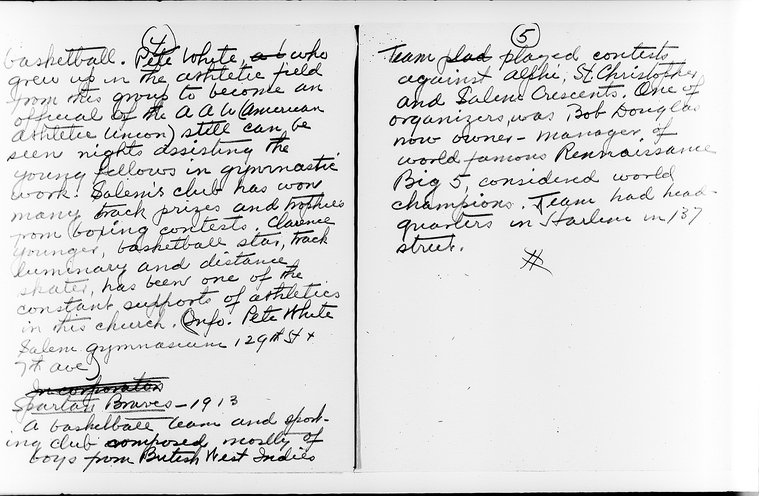 (4)
basketball. Pete White, a b who
grew up in the athletic field
from this group to become an
official of the A A U (American
Athletic Union) still can be
seen nights assisting the
young fellows in gymnastic
work. Salem's club has won
many track prizes and trophies
from boxing contests. Clarence
Younger, basketball star, track
luminary and distance
skater, has been one of the
constant supports of athletics
in this church. (Info. Pete White
Salem gymnasium 129th St +
7th ave)
Incorporators
Spartan Braves - 1913
A basketball team and sport-
ing club composed mostly of
boys from British West Indies
(5)
Team plad played contests
against Alphi, St. Christopher
and Salem Crescents. One of
organizers was Bob Douglas
now owner - manager of
world famous Rennaissance
Big 5, considered world
champions. Team had head-
quarters in Harlem in 137
street.
#